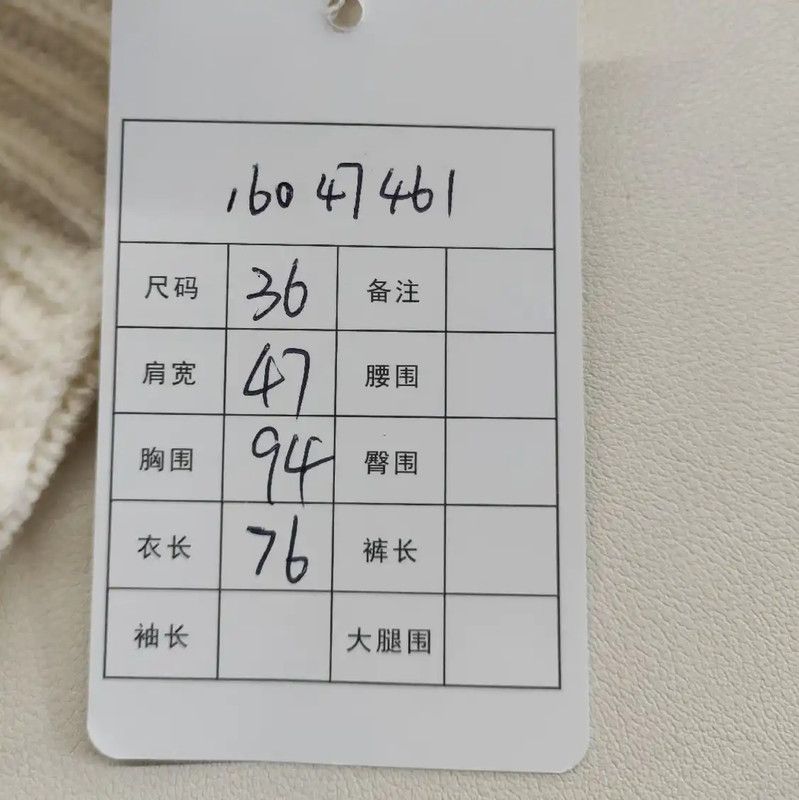 16047461
尺码 36 备注
肩宽 47 腰围
胸围 94 臀围
衣长 76 裤长
袖长 大腿围